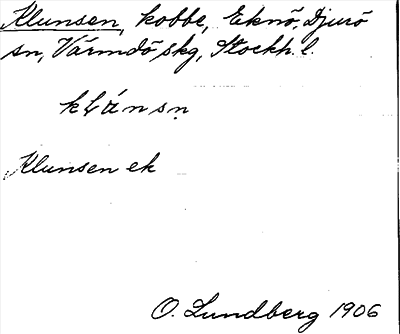 Klunsen, kobbe, Eknö, Djurö
sn, Värmdö skg, Stockh. l.
Klunsen ek
O. Lundberg 1906